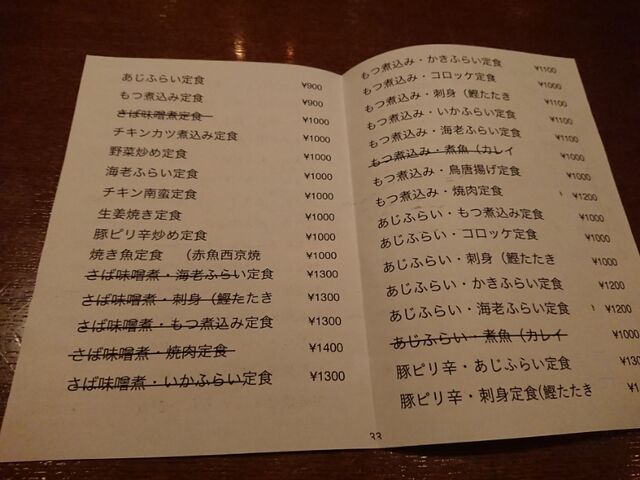 あじふらい定食 ¥900
もつ煮込み定食 ¥900
さば味噌煮定食 ¥1000
チキンカツ煮込み定食 ¥1000
野菜炒め定食 ¥1000
海老ふらい定食 ¥1000
チキン南蛮定食 ¥1000
生姜焼き定食 ¥1000
豚ピリ辛炒め定食 ¥1000
焼き魚定食 (赤魚西京焼 ¥1000
さば味噌煮・海老ふらい定食 ¥1300
さば味噌煮・刺身(鰹たたき ¥1300
さば味噌煮・もつ煮込み定食 ¥1300
さば味噌煮・焼肉定食 ¥1400
さば味噌煮・いかふらい定食 ¥1300
もつ煮込み・かきふらい定食 ¥1100
もつ煮込み・コロッケ定食 ¥1000
もつ煮込み・刺身(鰹たたき ¥1100
もつ煮込み・いかふらい定食 ¥1100
もつ煮込み・海老ふらい定食 ¥1100
もつ煮込み・煮魚(カレイ ¥1000
もつ煮込み・鳥唐揚げ定食 ¥1000
もつ煮込み・焼肉定食 ¥1200
あじふらい・もつ煮込み定食 ¥1000
あじふらい・コロッケ定食 ¥1000
あじふらい・刺身(鰹たたき ¥1000
あじふらい・かきふらい定食 ¥1200
あじふらい・海老ふらい定食 ¥1200
あじふらい・煮魚(カレイ ¥1000
豚ピリ辛・あじふらい定食
豚ピリ辛・刺身定食(鰹たたき
33